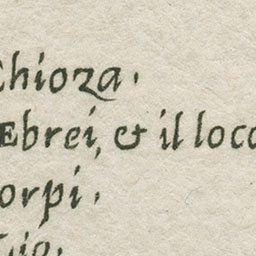 Chioza.
Ebrei, & il loco
orpi.